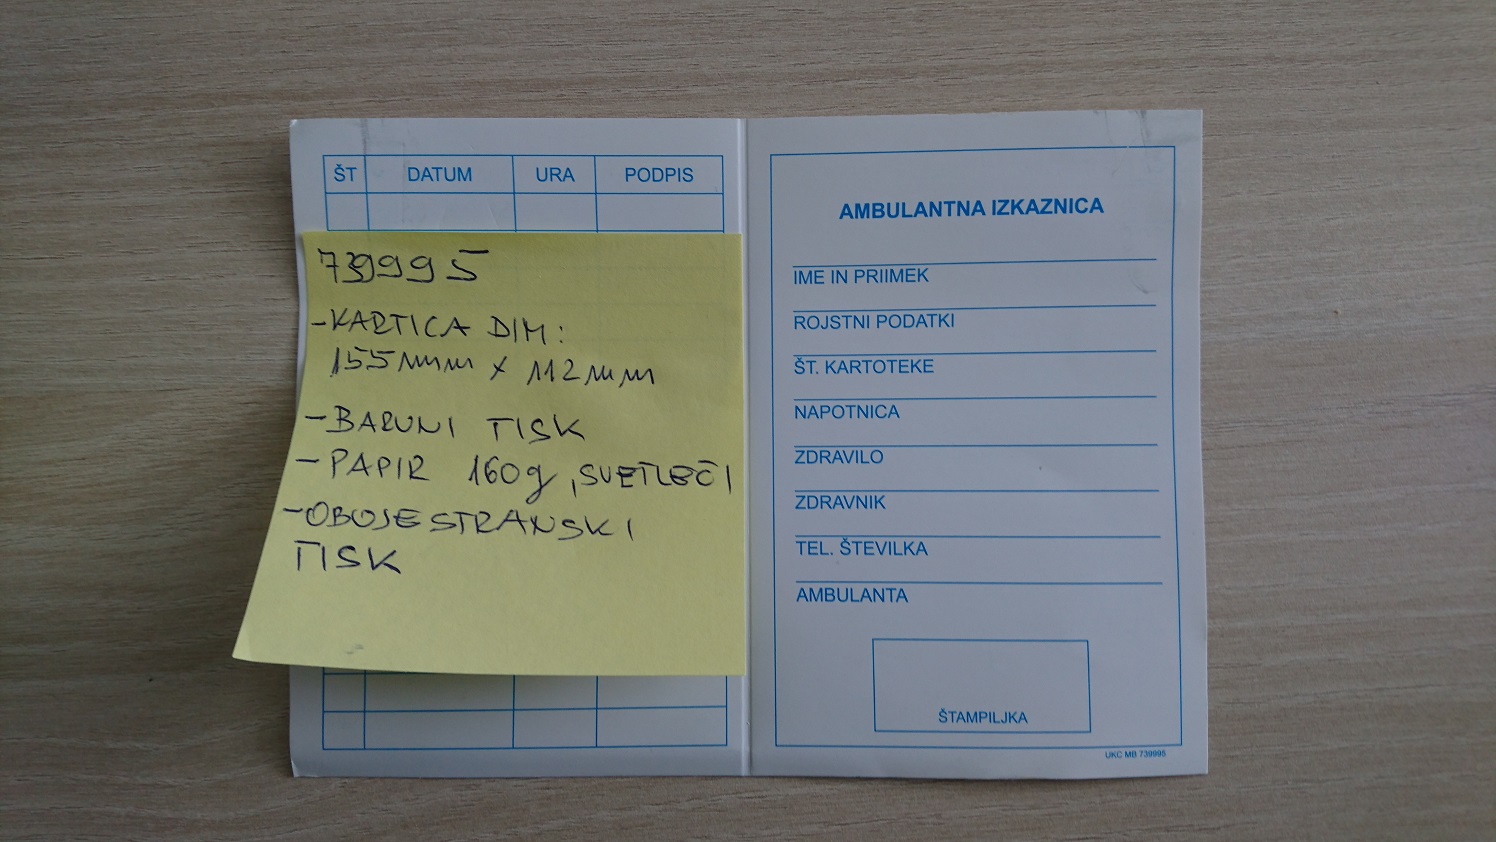 ŠT DATUM URA PODPIS
739995
-KARTICA DIM:
155mm x 112mm
-BARVNI TISK
-PAPIR 160g, SVETLEČI
-OBOJESTRANSKI
TISK
AMBULANTNA IZKAZNICA
IME IN PRIIMEK
ROJSTNI PODATKI
ŠT. KARTOTEKE
NAPOTNICA
ZDRAVILO
ZDRAVNIK
TEL. ŠTEVILKA
AMBULANTA
ŠTAMPILJKA
UKC MB 739995